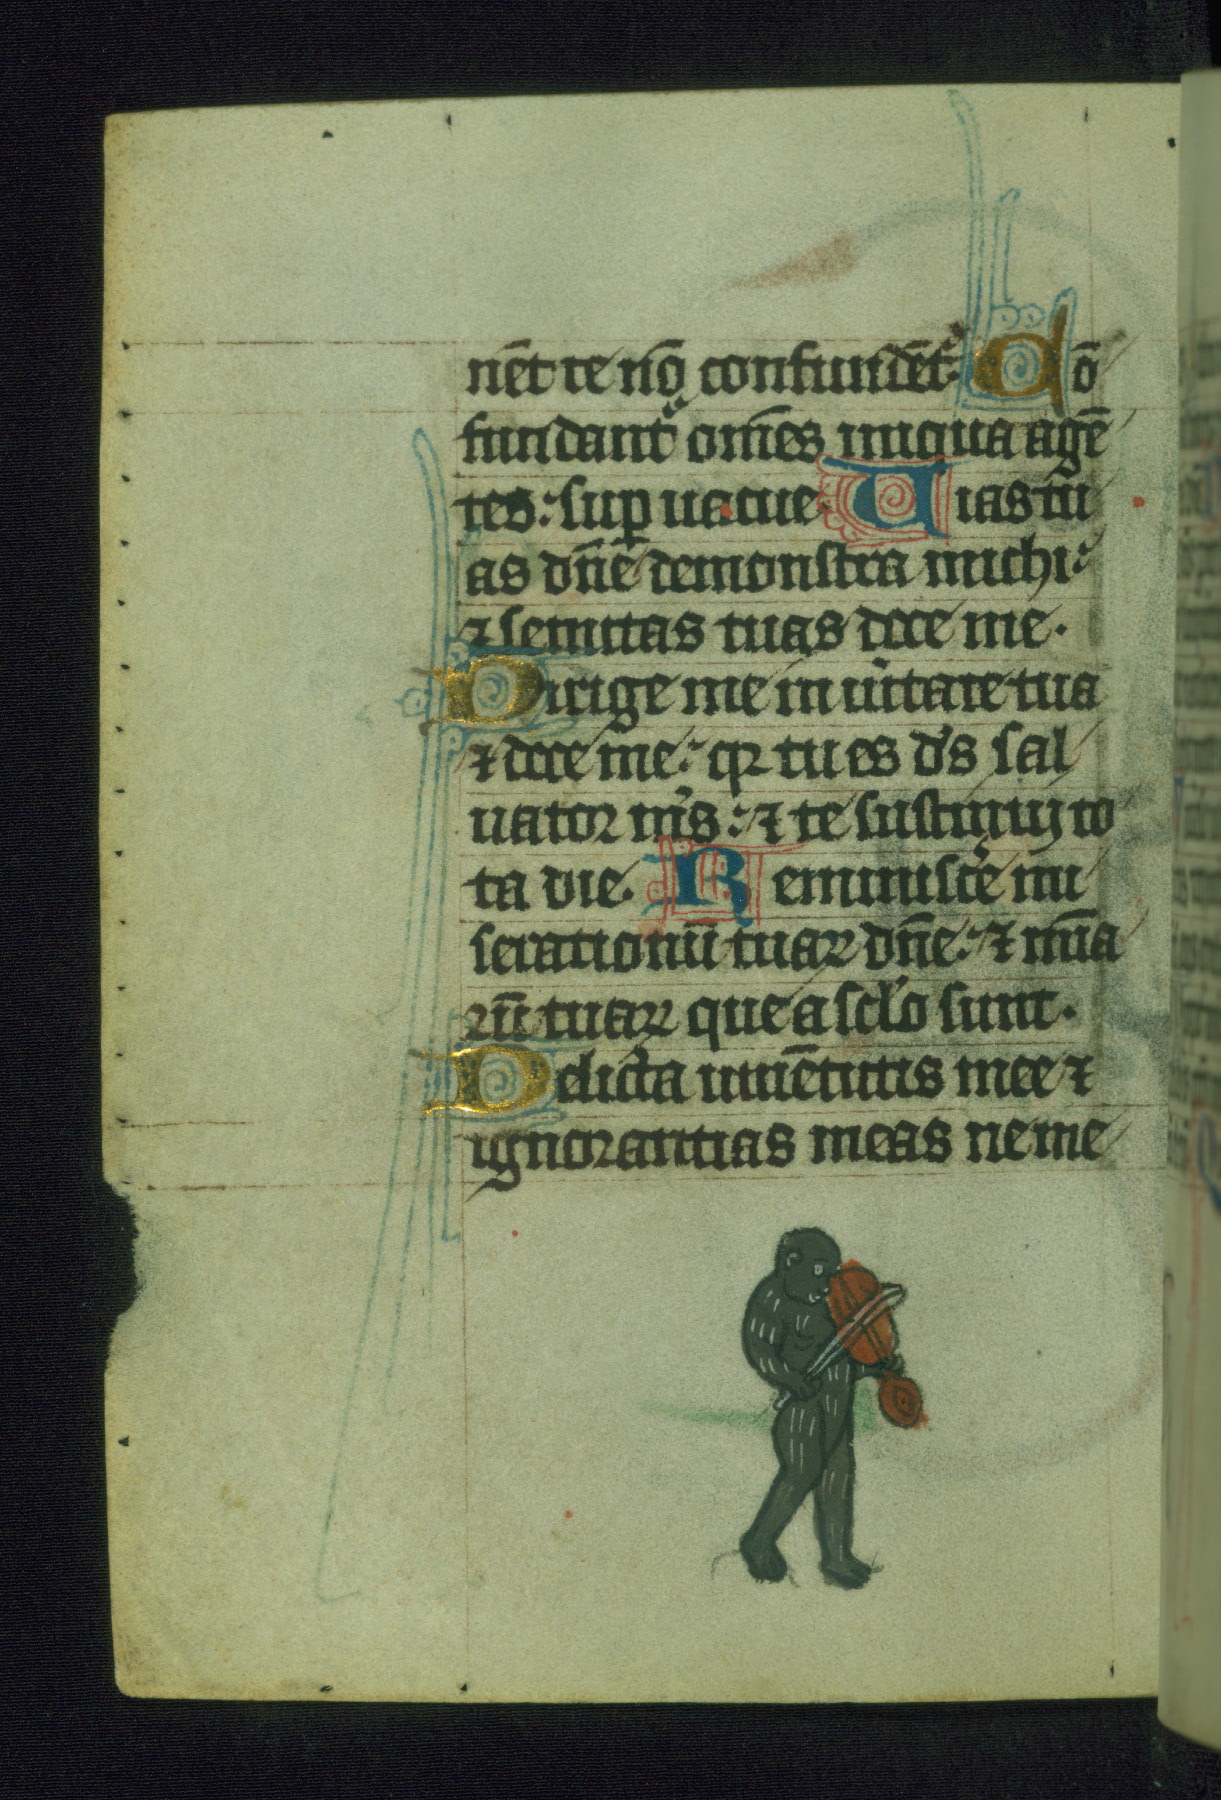 nēt te nō confundēt᷑. Cō
fundant᷑ om̄es iniqua agē
tes: sup̱ uacue. Uias tu
as dn̄e demonstra michi:
⁊ semitas tuas doce me.
Dirige me in uītate tua
⁊ doce me: qꝛ tu es ds̄ sal
uator ms̄: ⁊ te sustinuij to
ta die. Reminiscē mi
serationū tuaꝝ dn̄e: ⁊ mīa
rū tuaꝝ que a sc̄lo sunt.
Delicta iuuētutis mee ⁊
ignorantias meas ne me